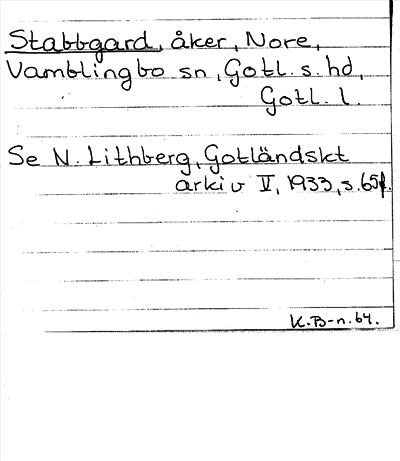 Stabbgard, åker, Nore,
Vamblingbo sn, Gotl. s. hd,
Gotl. l.
Se N. Lithberg, Gotländskt
arkiv V, 1933, s. 65f.
K.B-n. 64.